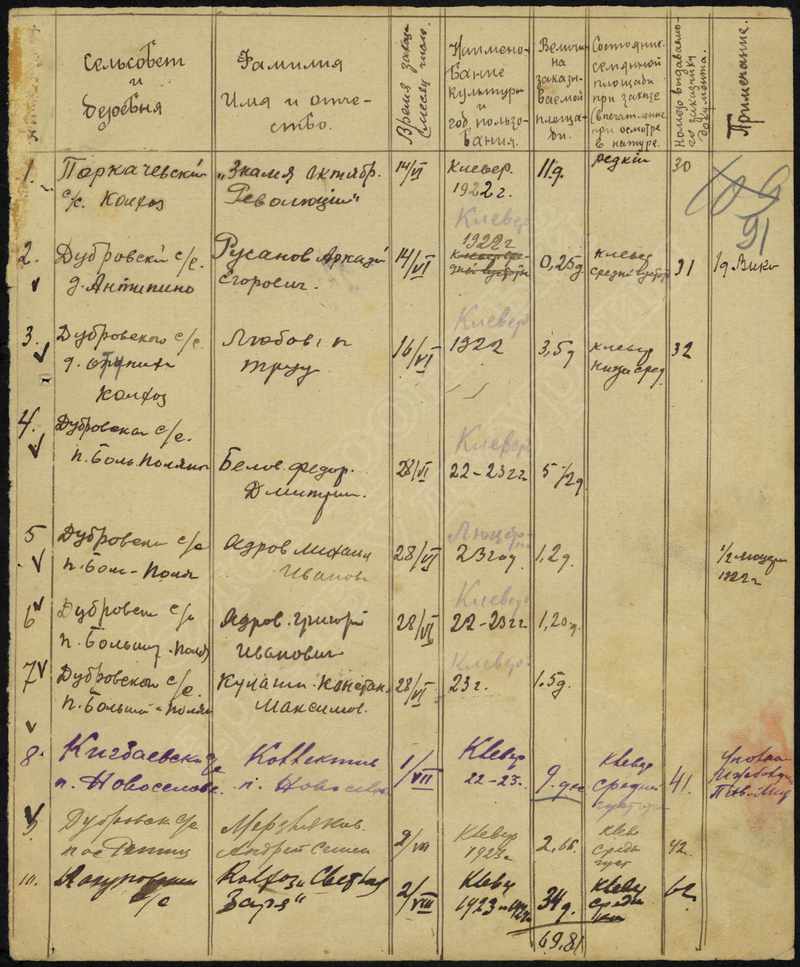 Сельсовет
и
деревня
Фамилия
Имя и отче-
ство.
Время заказа
(месяц число).
Наимено-
вание
культуры
и
год пользо-
вания.
Величи-
на
заказы-
ваемой
площа-
ди.
Состояние
семянной
площади
при заказе
(впечатление
при осмотре
в натуре.
Номер выдаваемо-
го заказчику
документа.
Примечание.
1.
Поркачевский
с/с. Колхоз
„Знамя Октябр.
Революции"
14/VI
Клевер.
1922 г.
11 д.
редкий
30
91
2.
Дубровский с/с.
д. Антипино
Русанов Аркадий
Егорович.
14/VI
Клевер
1922 г
0,25 д
клевер
средний
31
1 д. Вики
3.
Дубровского с/с.
Колхоз
Любовь к
труду
16/VI
Клевер
1922
3,5 д
клевер
ниже сред.
32
4.
Дубровского с/с.
п. Боль. Поляна
Белов. Федор.
Дмитрии.
28/VI
Клевер
22-23 гг
5 1/2 д
5
Дубровский с/с
п. Бол-Поля
Адров Михаил
Иванов
28/VI
Люцер
23 год
1,2 д.
1922 г
6
Дубровский с/с
п. Больш. Поля
Адров. Григорий
Иванович
28/VI
Клевер
22-23 гг
1,20 д.
7
Дубровского с/с.
п. Больший-Поля
Максимов.
28/VI
Клевер
23 г.
1.5 д.
8.
Кигбаевский с/с
п. Новоселово.
Коллектив
п. Новосело
1/VII
Клевер
22-23.
9. дес
Клевер
средний
41.
9
Дубровск с/с
Мерзляков.
Андрей
2/VII
Клевер
1923 г.
2,66.
Клев
средн
42
10.
с/с
Колхоз „Светлая
Заря"
2/VIII
Клевер
1923
34 д.
Клевер
средн
62
69.81